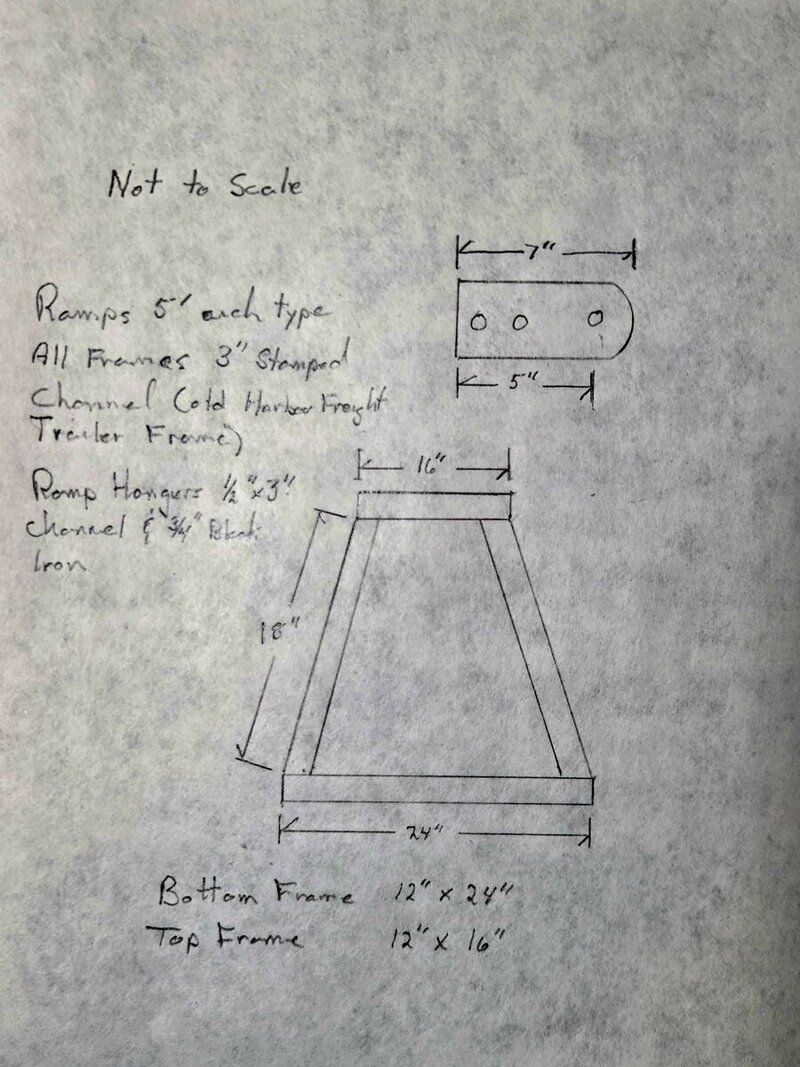 Not to Scale
7"
Ramps 5' arch type
All Frames 3" Stamped
5"
Channel (old Harbor Freight
Trailer Frame)
16"
Ramp Hangers 1/2"x3"
Channel & 3/4" Black
Iron
18"
24"
Bottom Frame 12" x 24"
Top Frame 12" x 16"